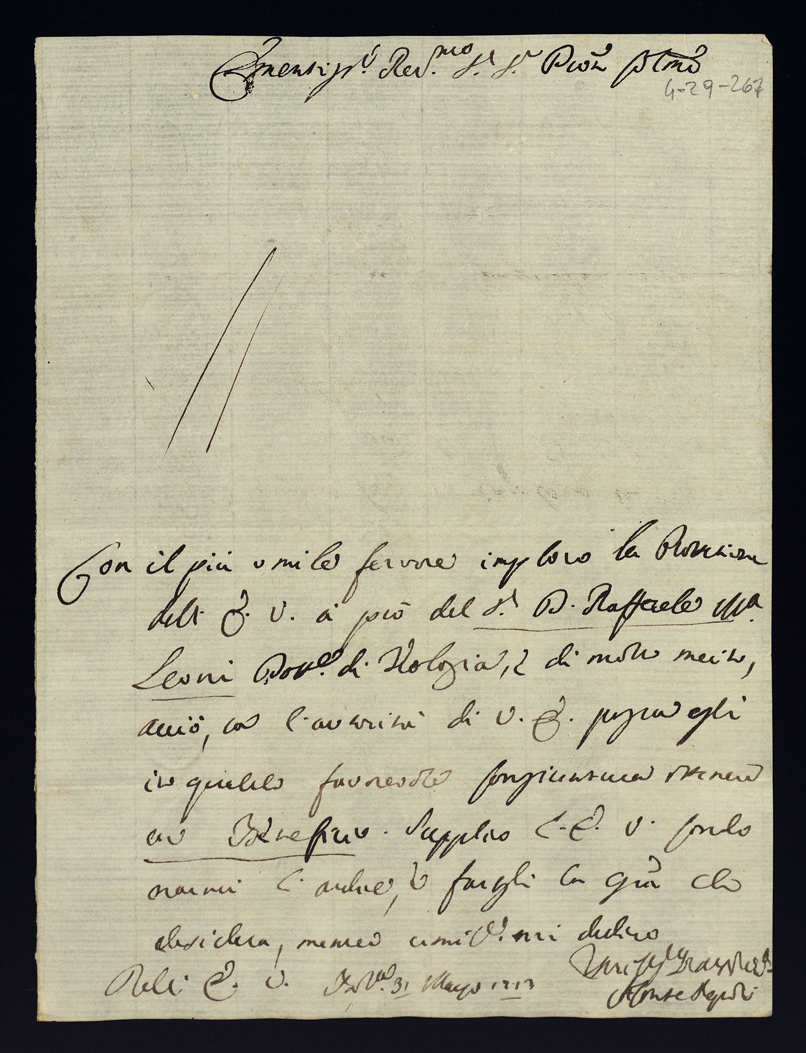 Eminentiss.e Rev.mo S.r S.r Pron
4-29-267
Con il più umile fervore imploro la Protezione
dell' E. V. a prò del S.r D. Raffaele M.a
Leoni di Teologia, e di molto merito,
acciò, con l'autorità di V. E. possa egli
in qualche favorevole congiuntura ottenere
un Benefizio. Supplico l'E. V.
l'ardire, e fargli la gra che
desidera, mentre umil.e mi dedico
Dell' E. V. 31 Maggio